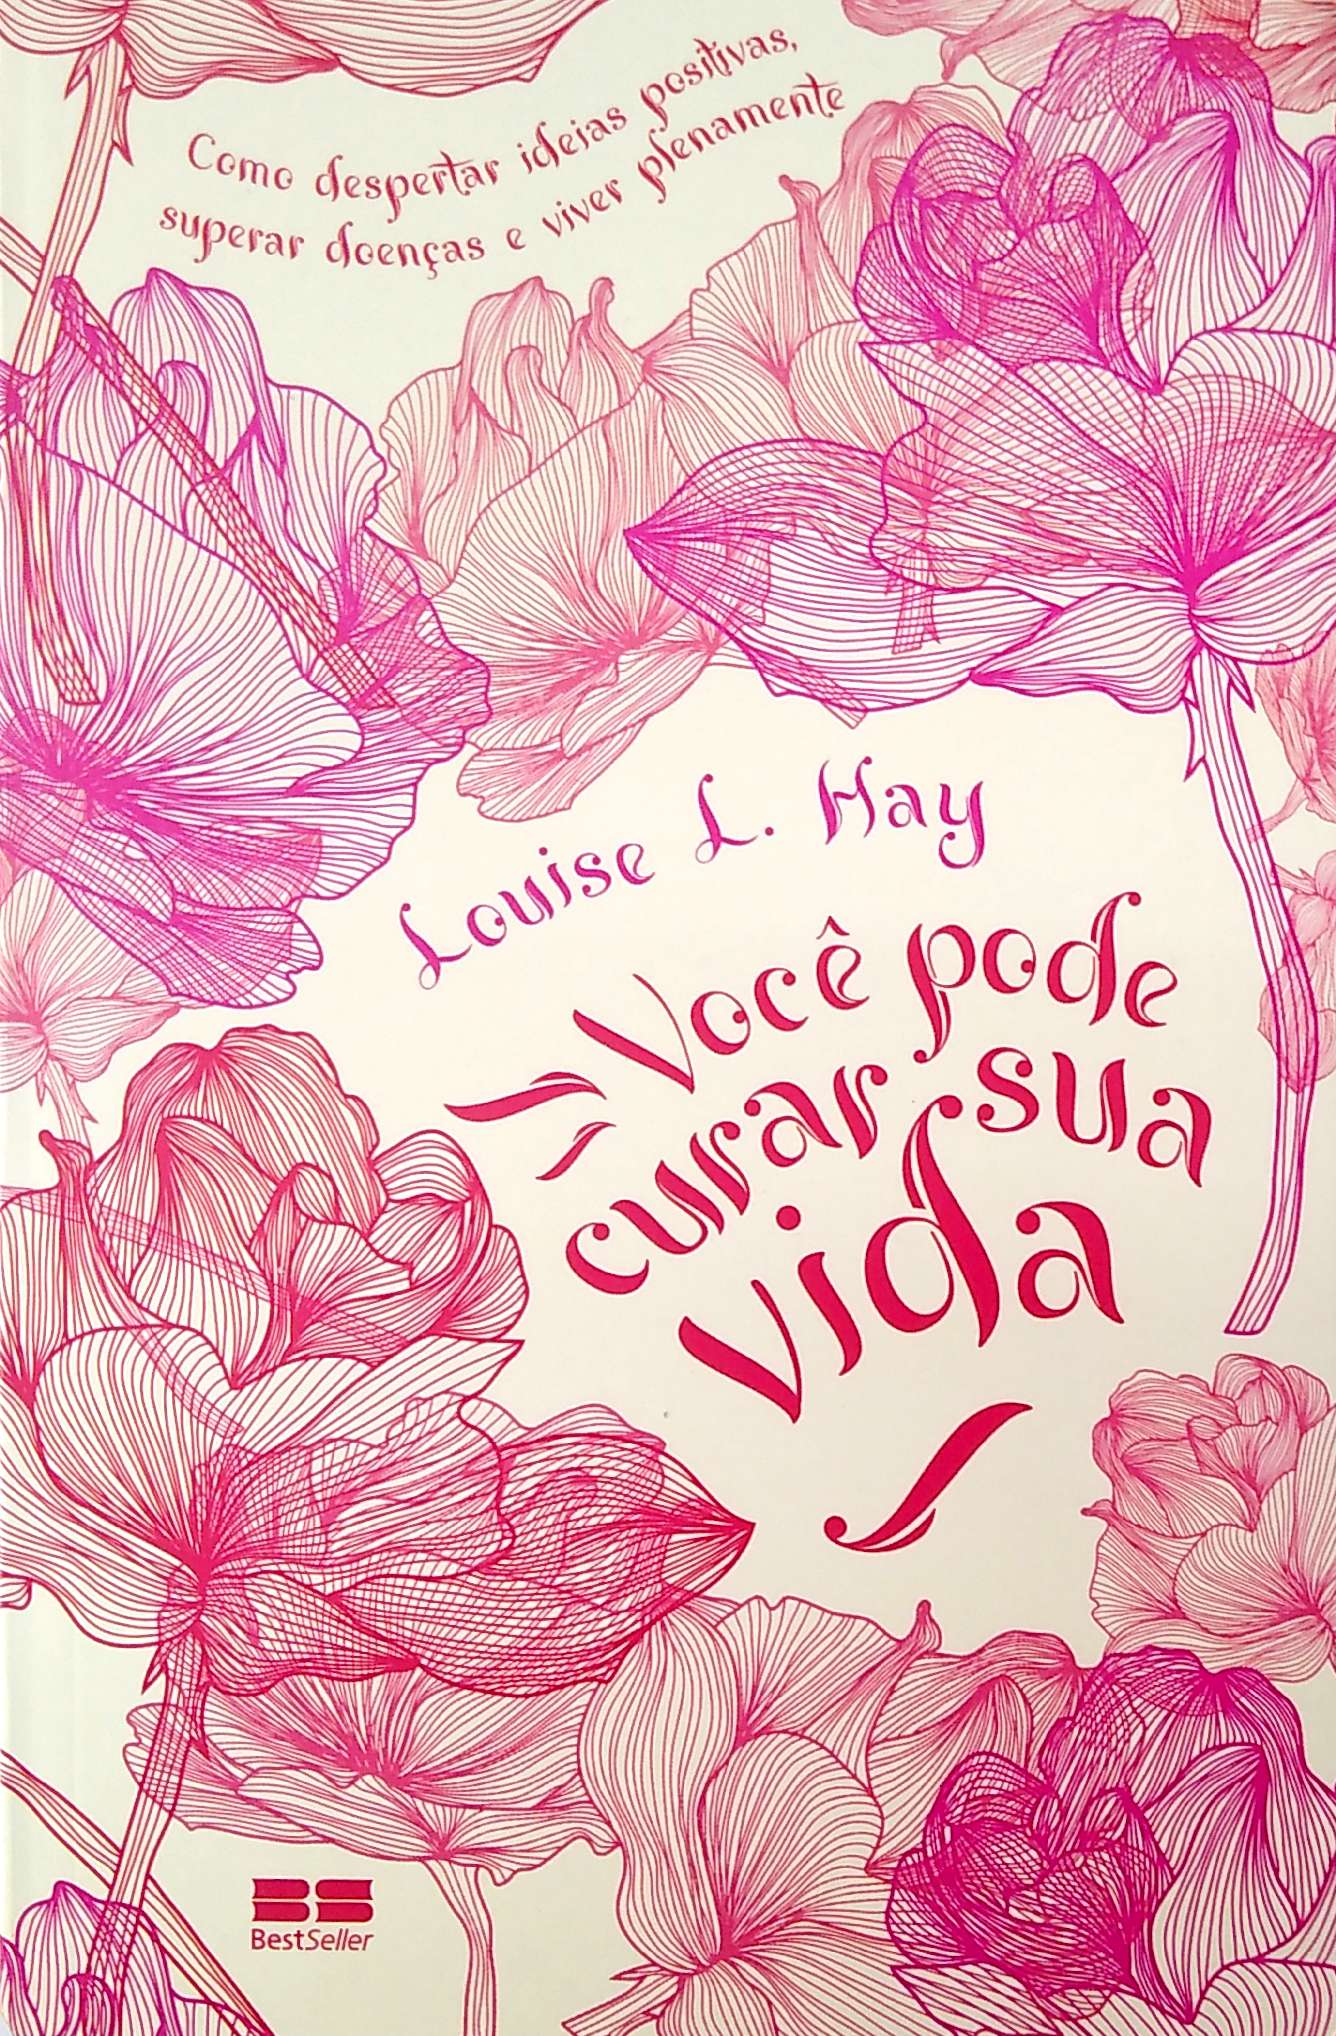 Como despertar ideias positivas,
superar doenças e viver plenamente
Louise L. Hay
Você pode
curar sua
vida
BS
BestSeller